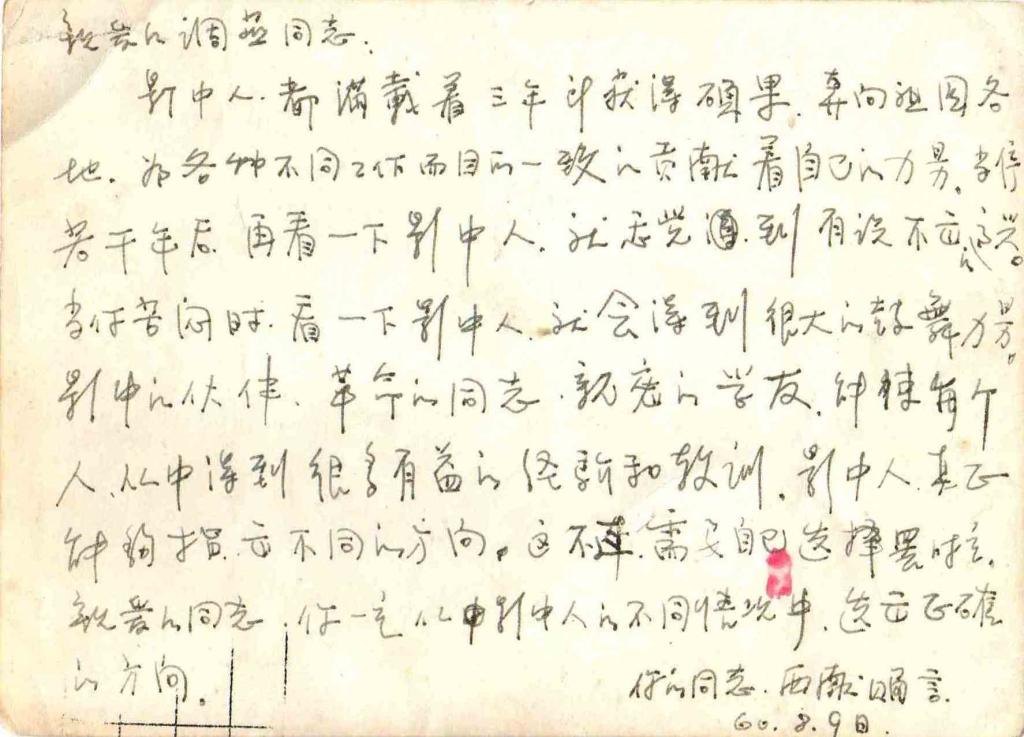 亲爱的调燕同志.
影中人.都满载着三年斗获得硕果.奔向祖国各
地.为各种不同工作而目的一致的贡献着自己的力男。当停
若干年后.再看一下影中人.就感觉到有说不出的高兴。
当你苦闷时.看一下影中人.就会得到很大的鼓舞力男。
影中的伙伴、革命的同志.亲密的学友.每个
人.从中得到很多有益的经验和教训.影中人.真正
能够指出不同的方向。这不需要自己选择罢啦.
亲爱的同志.你一定从中影中人的不同情况中.选出正确
的方向。
你的同志.西献
60.8.9日.